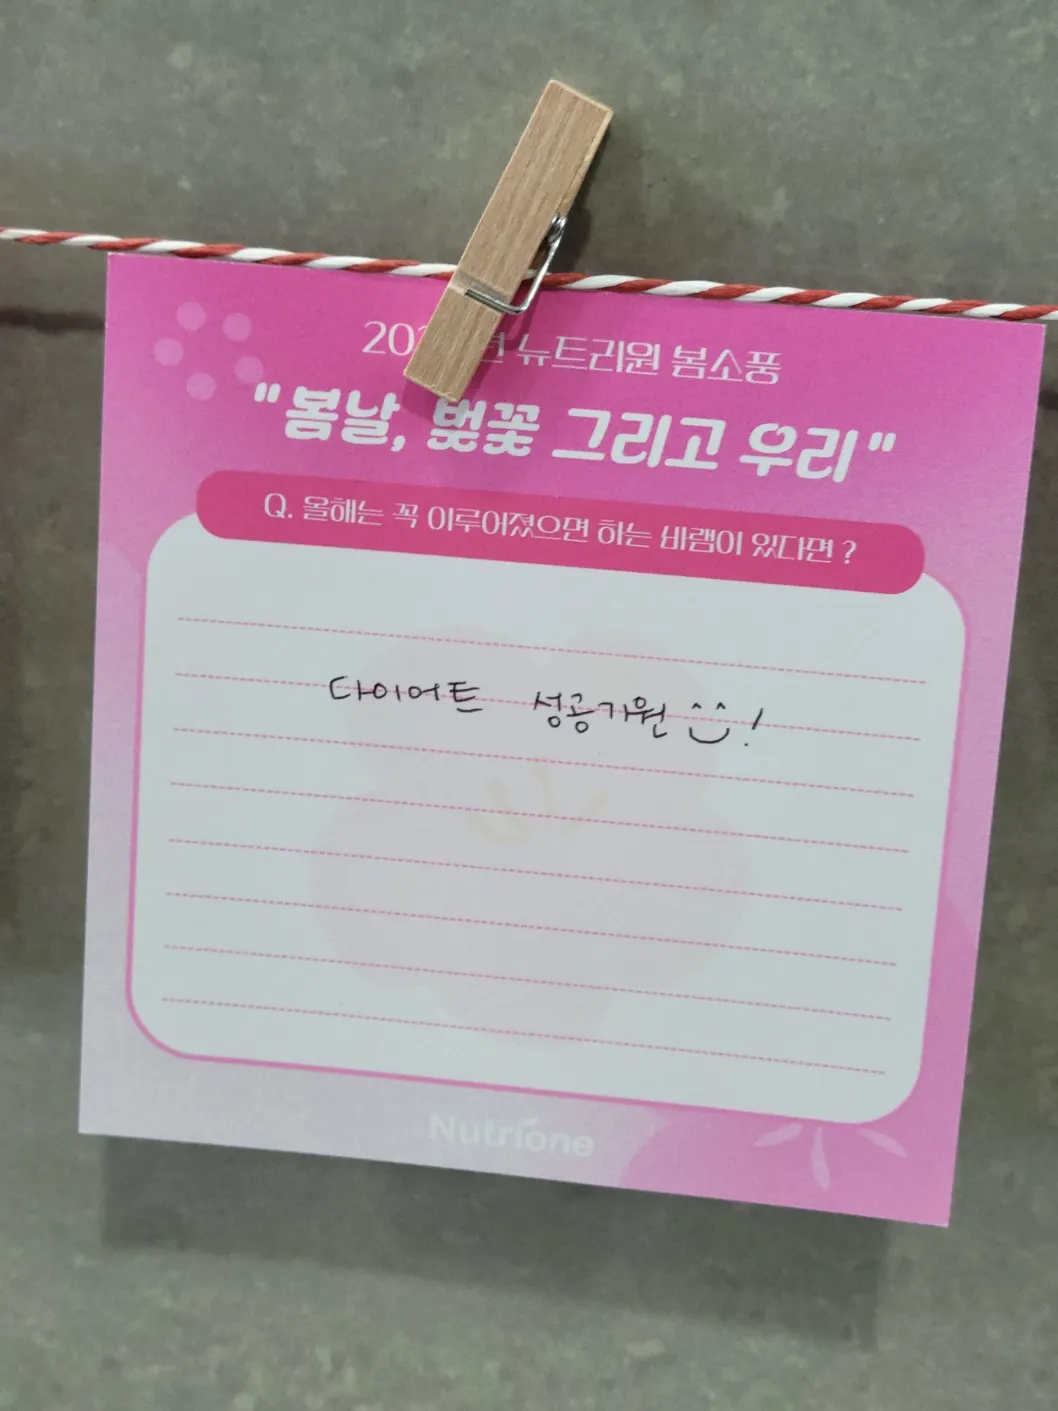 뉴트리원 봄소풍
"봄날, 벚꽃 그리고 우리"
Q. 올해는 꼭 이루어졌으면 하는 바램이 있다면 ?
다이어트 성공기원 ^^!
Nutrione